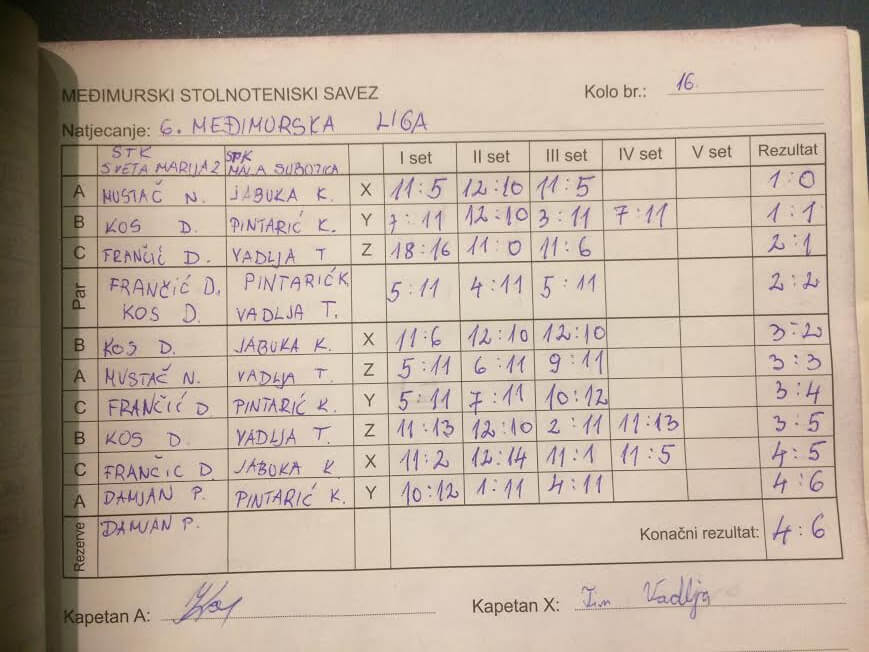 MEĐIMURSKI STOLNOTENISKI SAVEZ Kolo br.: 16.
Natjecanje: 6. MEĐIMURSKA LIGA
STK SVETA MARIJA 2 STK MALA SUBOTICA I set II set III set IV set V set Rezultat
A MUSTAČ N. JABUKA K. X 11:5 12:10 11:5 1:0
B KOS D. PINTARIĆ K. Y 7:11 12:10 3:11 7:11 1:1
C FRANČIĆ D. VADLJA T Z 18:16 11:0 11:6 2:1
Par FRANČIĆ D. PINTARIĆ K 5:11 4:11 5:11 2:2
KOS D. VADLJA T.
B KOS D. JABUKA K. X 11:6 12:10 12:10 3:2
A MUSTAČ N. VADLJA T. Z 5:11 6:11 9:11 3:3
C FRANČIĆ D. PINTARIĆ K. Y 5:11 7:11 10:12 3:4
B KOS D. VADLJA T. Z 11:13 12:10 2:11 11:13 3:5
C FRANČIC D. JABUKA K X 11:2 12:14 11:1 11:5 4:5
A DAMJAN P. PINTARIĆ K. Y 10:12 1:11 4:11 4:6
Rezerve DAMJAN P. Konačni rezultat: 4:6
Kapetan A: Kapetan X: Tin Vadlja